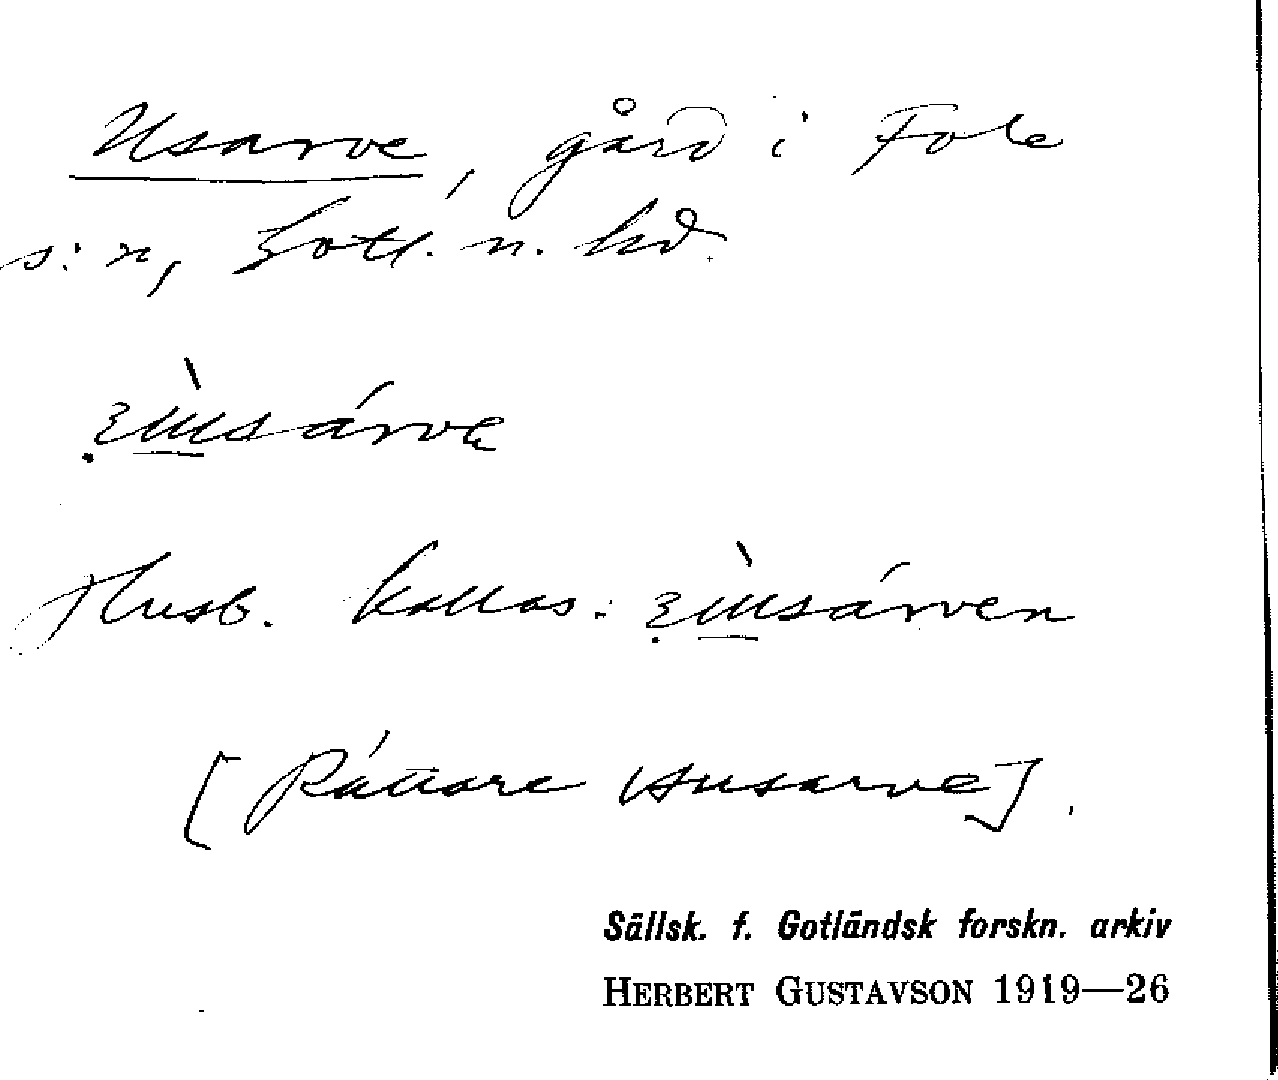 Usarve, gård i Fole
s:n, Gotl. n. hd.
Husb. kallas:
[Rättare Husarve].
Sällsk. f. Gotländsk forskn. arkiv
HERBERT GUSTAVSON 1919—26